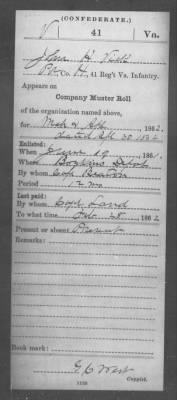 (CONFEDERATE.)
V 41 Va.
John H
Pvt Co. H, 41 Reg't Va. Infantry.
Appears on
Company Muster Roll
of the organization named above,
for Mch & Apl, 1862.
dated Apl 30 1862
Enlisted:
When June 19, 1861.
Where Boykins Depot
By whom Cap
Period 12 mo
Last paid:
By whom Capt Land
To what time Feb. 28, 1862
Present or absent Present
Remarks:
Book mark:
G C West
Copyist.